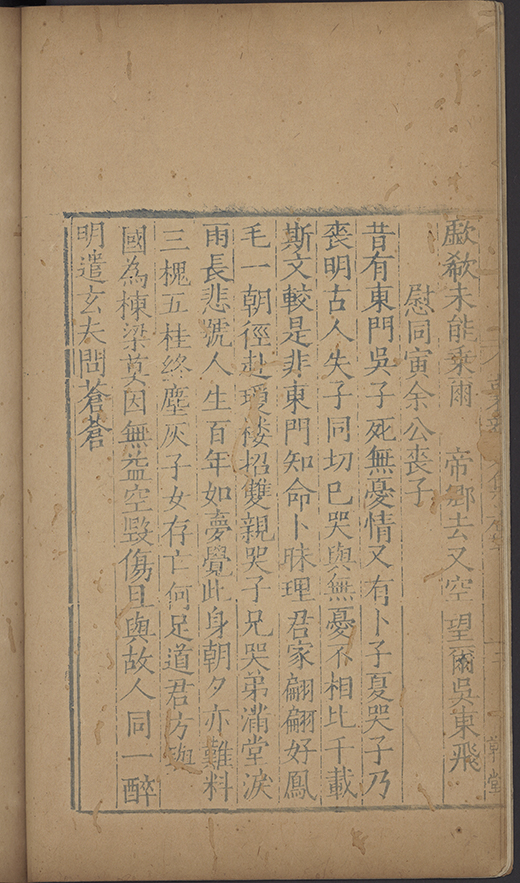 歔欷未能乘爾　帝鄉去又空望爾吳東飛
慰同寅余公喪子
昔有東門吳子死無憂情又有卜子夏哭子乃
喪明古人失子同切巳哭與無憂不相比千載
斯文較是非東門知命卜昧理君家翩翩好鳳
毛一朝徑赴瓊樓招雙親哭子兄哭弟滿堂淚
雨長悲號人生百年如夢覺此身朝夕亦難料
三槐五桂終塵灰子女存亡何足道君方與
國為棟梁莫因無益空毀傷旦與故人同一醉
明遣玄夫問蒼蒼